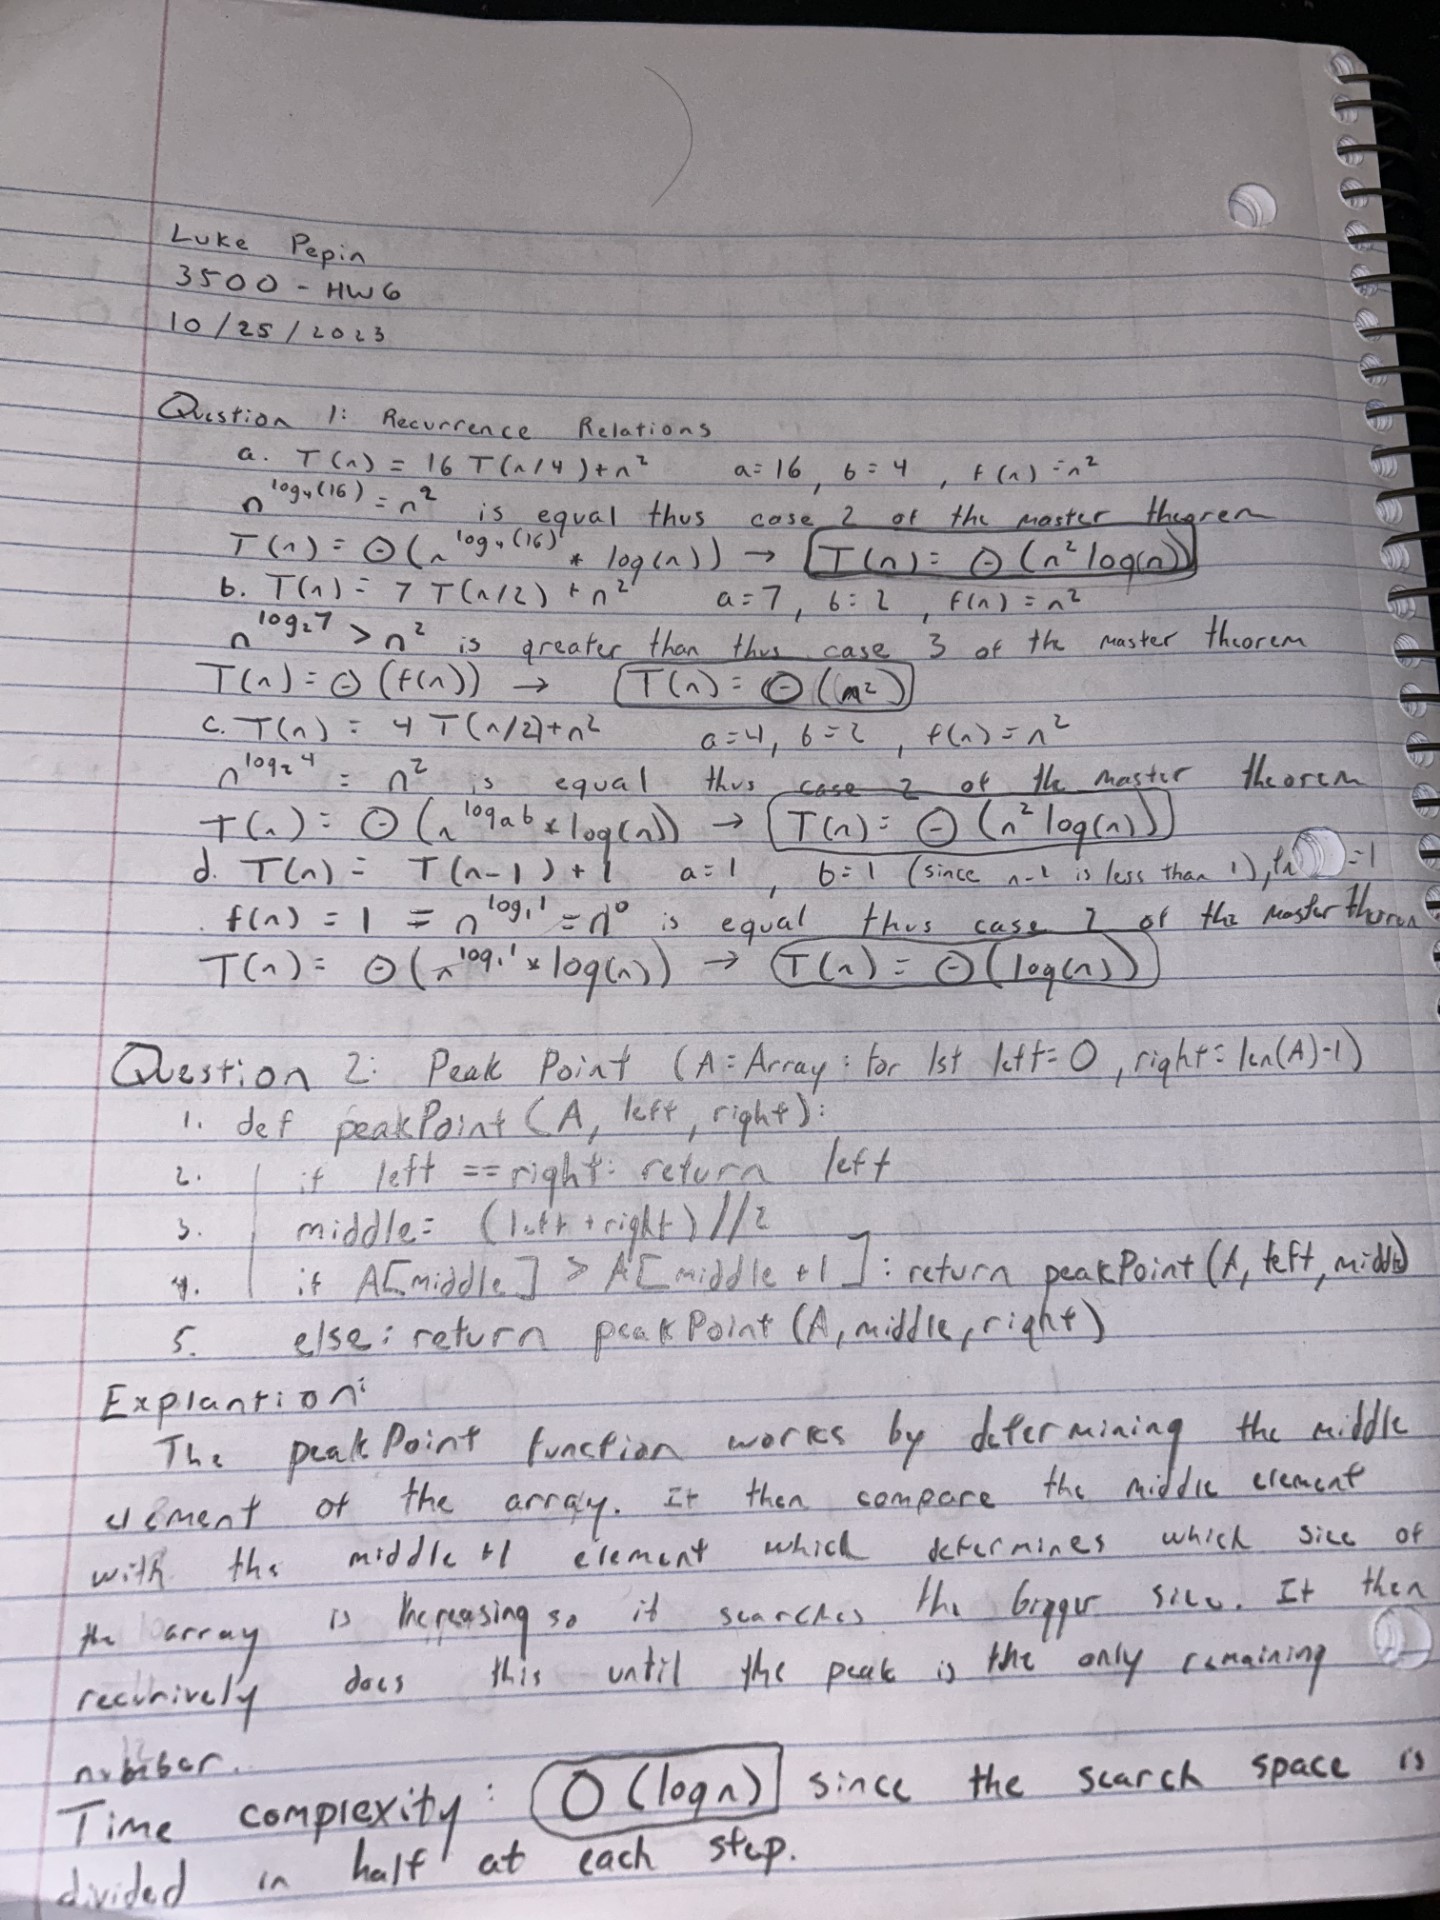 Luke Pepin
3500 - HW6
10/25/2023
Question 1: Recurrence Relations
a. T(n) = 16 T(n/4) + n² a=16, b=4, f(n)=n²
n^log₄(16) = n² is equal thus case 2 of the master theorem
T(n) = Θ(n^log₄(16) * log(n)) → T(n) = Θ(n² log(n))
b. T(n) = 7 T(n/2) + n² a=7, b=2, f(n)=n²
n^log₂7 > n² is greater than thus case 3 of the master theorem
T(n) = Θ(f(n)) → T(n) = Θ(n²)
c. T(n) = 4 T(n/2)+n² a=4, b=2, f(n)=n²
n^log₂4 = n² is equal thus case 2 of the master theorem
T(n) = Θ(n^logab * log(n)) → T(n) = Θ(n² log(n))
d. T(n) = T(n-1) + 1 a=1, b=1 (since n-1 is less than 1), =1
f(n) = 1 = n^log₁1 = n⁰ is equal thus case 2 of the Master therem
T(n) = Θ(n^log₁1 * log(n)) → T(n) = Θ(log(n))
Question 2: Peak Point (A = Array : for 1st left=0, right=len(A)-1)
1. def peakPoint(A, left, right):
2. if left == right: return left
3. middle= (left + right)//2
4. if A[middle] > A[middle +1]: return peakPoint(A, left, middle)
5. else: return peakPoint(A, middle, right)
Explantion:
The peakPoint function works by determining the middle
element of the array. It then compare the middle element
with the middle +1 element which determines which sice of
the array is increasing so it searches the bigger sice. It then
recurively does this until the peak is the only remaining
Time complexity: O(logn) since the search space is
divided in half at each step.